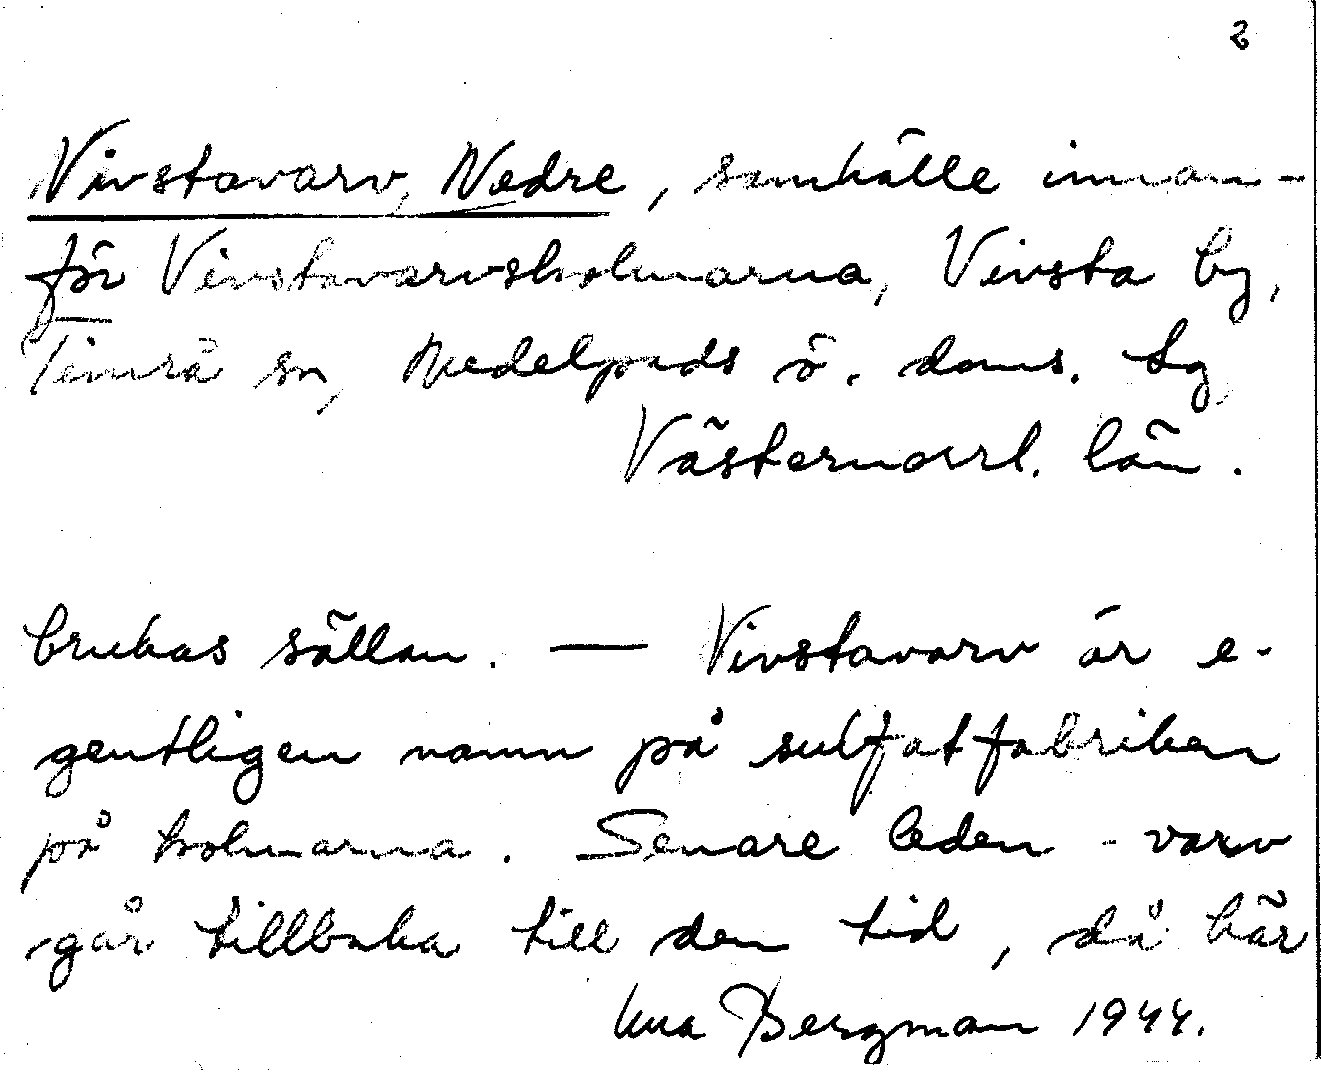 2
Vivstavarv, Nedre, samhälle innan-
för Vivstavarvsholmarna, Vivsta by,
Timrå sn, Medelpads ö. doms. tg
Västernorrl. län.
brukas sällan. — Vivstavarv är e-
gentligen namn på sulfatfabriken
på holmarna. Senare leden -varv
går tillbaka till den tid, då här
Bergman 1944.